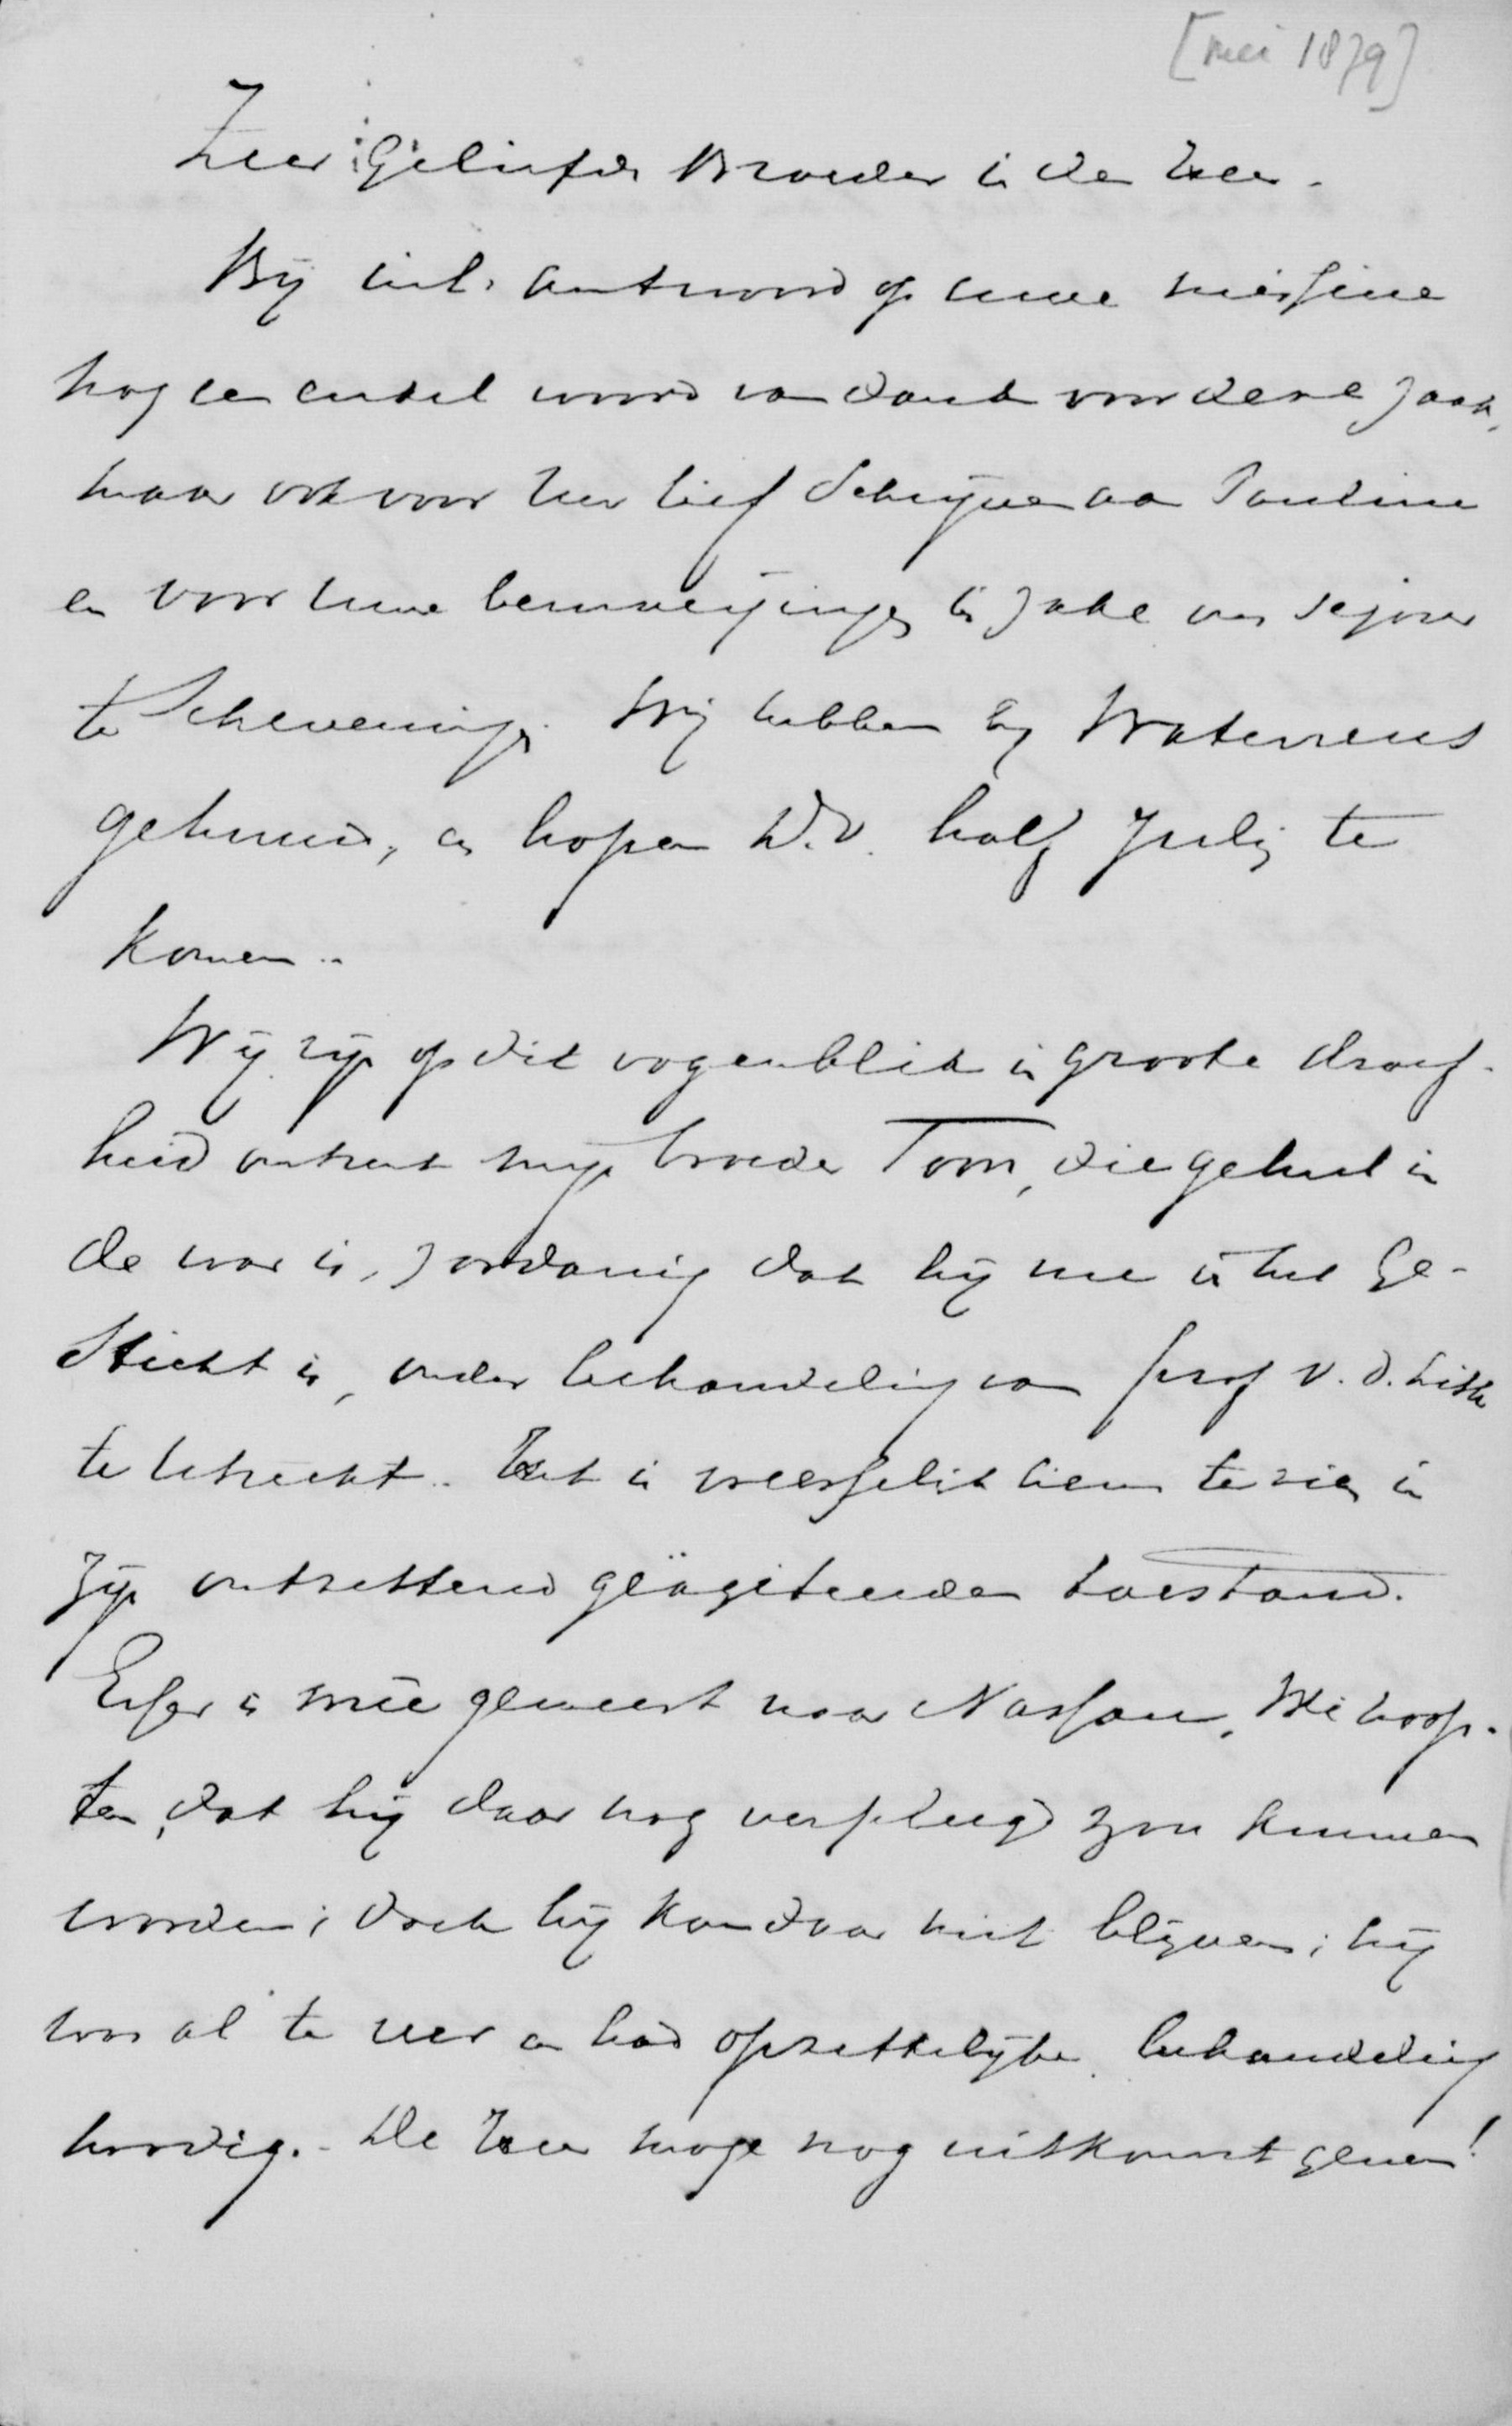 [mei 1879]
Zeer Geliefde Broeder in den Heer.
Bij antwoord op uwe missive
nog een enkel woord van dank voor deze zaak,
maar ook voor Uw lief schrijven aan Pauline
en voor uwe bemoeijingen in zake van sejour
te Scheveningen. Wij hebben bij Waterreus
gehuurd, en hopen D.V. half Julij te
komen.
Wij zijn op dit oogenblik in groote droef-
heid omtrent mijn broeder Tom, die geheel in
de war is, zoodanig dat hij nu in het Ge-
sticht is, onder behandeling van prof v. d. Lith
te Utrecht. Het is vreesselijk hem te zien in
zijn ontzettend geägiteerden toestand.
Eerst is mee geweest naar Nassau. We hoop-
ten, dat hij daar nog verpleegd zou kunnen
worden; doch hij kon daar niet blijven; hij
was al te zeer en had opzettelijke behandeling
noodig. De Heer moge nog uitkomst geven!